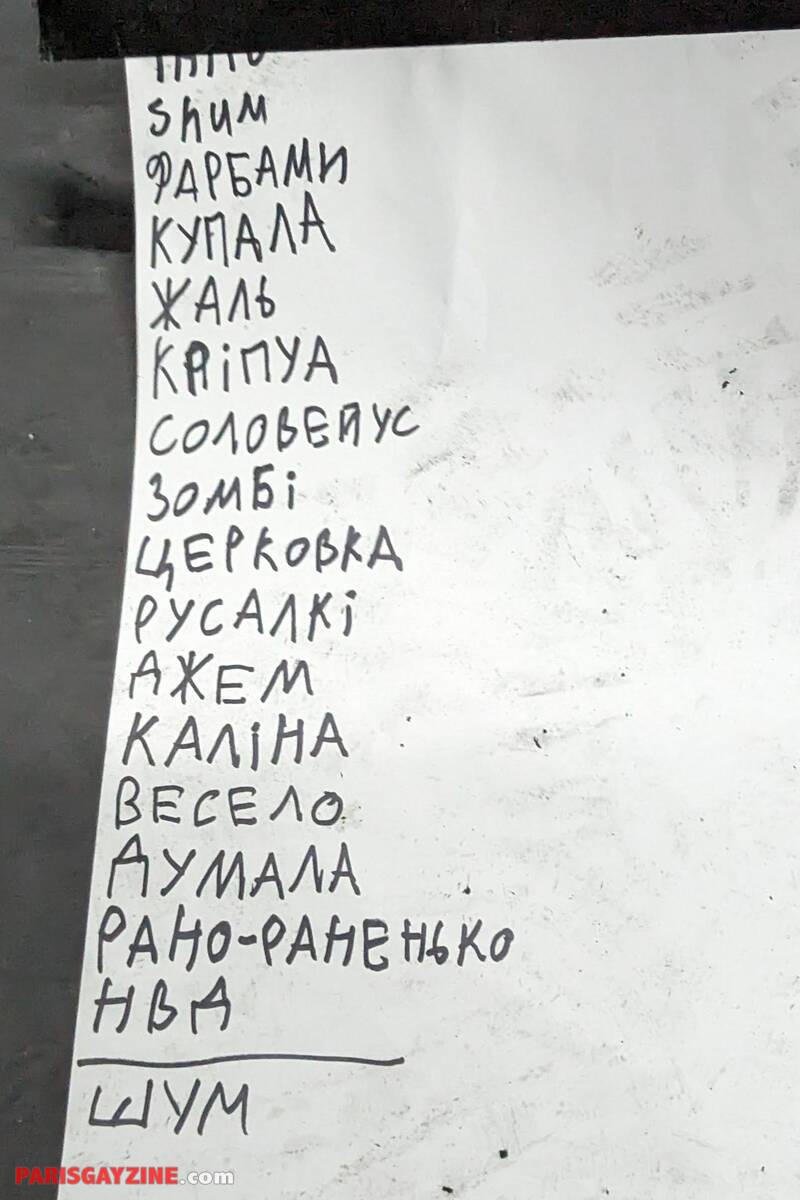 Shum
ФАРБАМИ
КУПАЛА
ЖАЛЬ
КРІПУА
СОЛОВЕЙУС
ЗОМБі
ЦЕРКОВКА
РУСАЛКі
ДЖЕМ
КАЛіНА
ВЕСЕЛО
ДУМАЛА
РАНО-РАНЕНЬКО
НВД
ШУМ
PARISGAYZINE.com